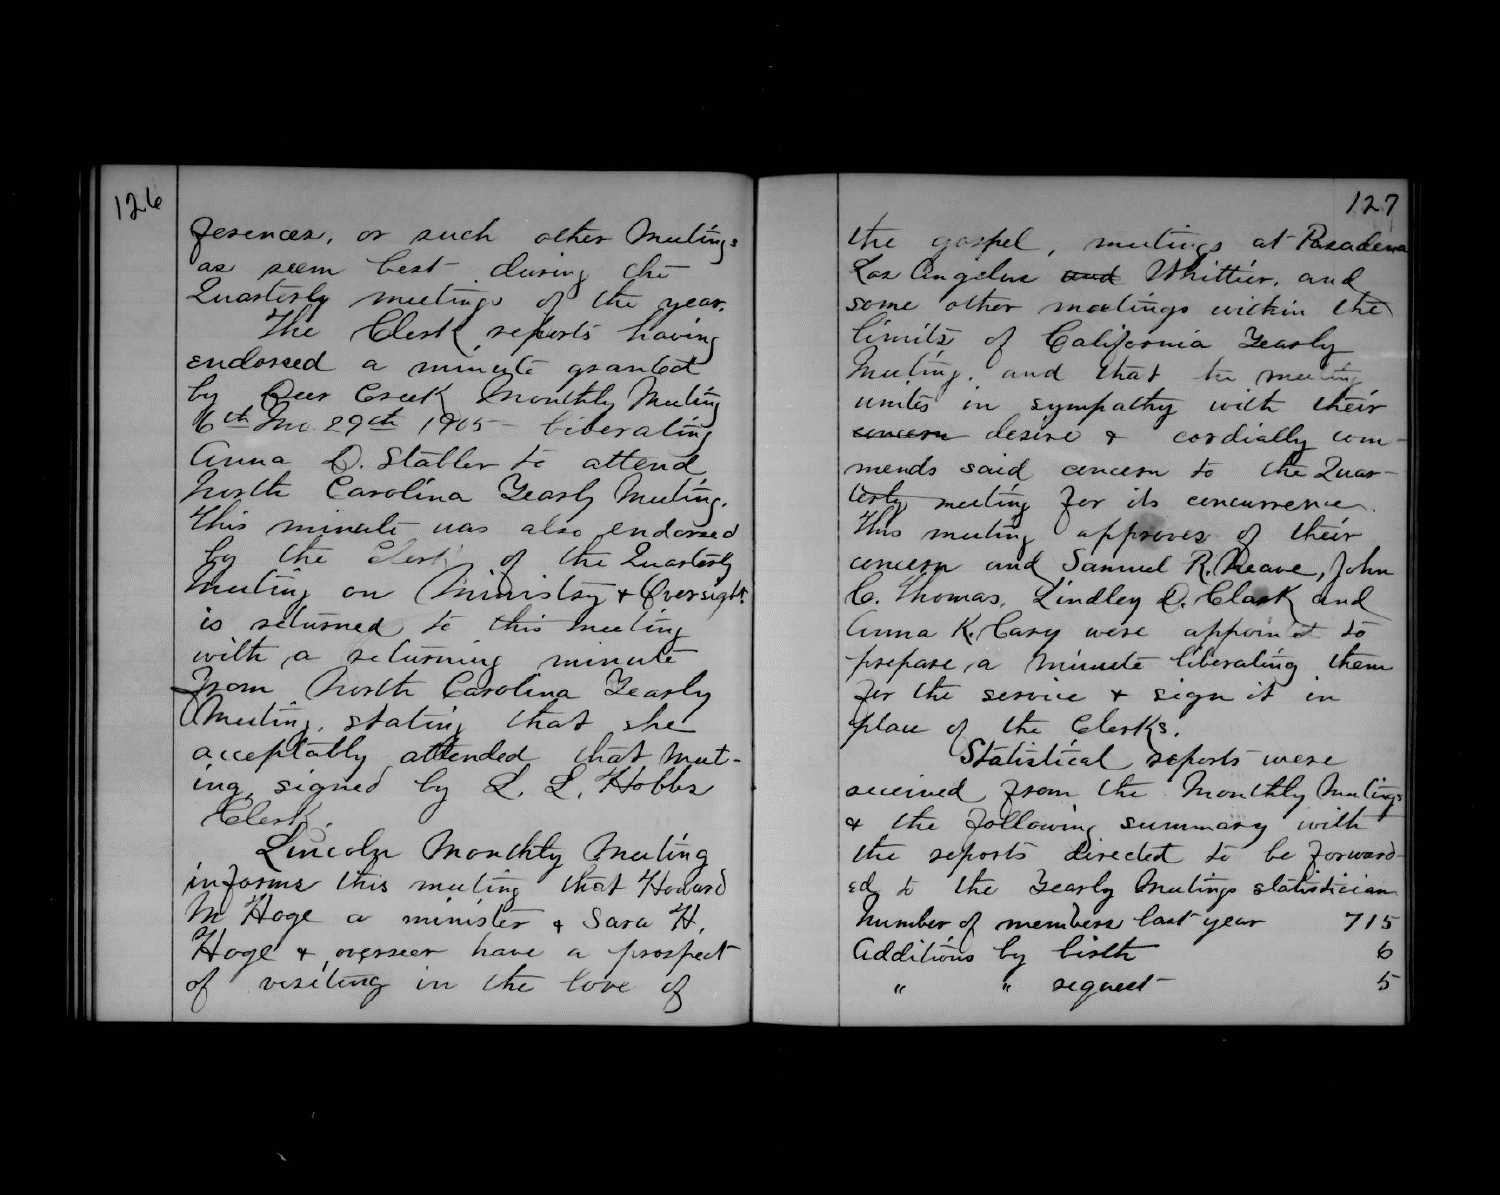 126
ferences, or such other Meetings
as seem best during the
Quarterly meetings of the year.
The Clerk reports having
endorsed a minute granted
by Deer Creek Monthly Meeting
6th Mo. 29th 1905 - liberating
Anna D. Stabler to attend
North Carolina Yearly Meeting.
This minute was also endorsed
by the Clerk of the Quarterly
Meeting on Ministry & Oversight
is returned to this meeting
with a returning minute
from North Carolina Yearly
Meeting, stating that she
acceptably attended that Meet-
ing, signed by L. L. Hobbs
Clerk.
Lincoln Monthly Meeting
informs this meeting that Howard
M Hoge a minister & Sara H.
Hoge & overseer have a prospect
of visiting in the love of
127
the gospel, meetings at Pasadena
Los Angeles and Whittier, and
some other meetings within the
limits of California Yearly
Meeting, and that the meeting
unites in sympathy with their
concern desire & cordially com-
mends said concern to the Quar-
terly meeting for its concurrence.
This meeting approves of their
concern and Samuel R. Neave, John
C. Thomas, Lindley D. Clark and
Anna K. Cary were appointed to
prepare a minute liberating them
for the service & sign it in
place of the Clerks.
Statistical reports were
received from the Monthly Meetings
& the following summary with
the reports directed to be forward-
ed to the Yearly Meetings statistician
Number of members last year 715
Additions by birth 6
" " request 5